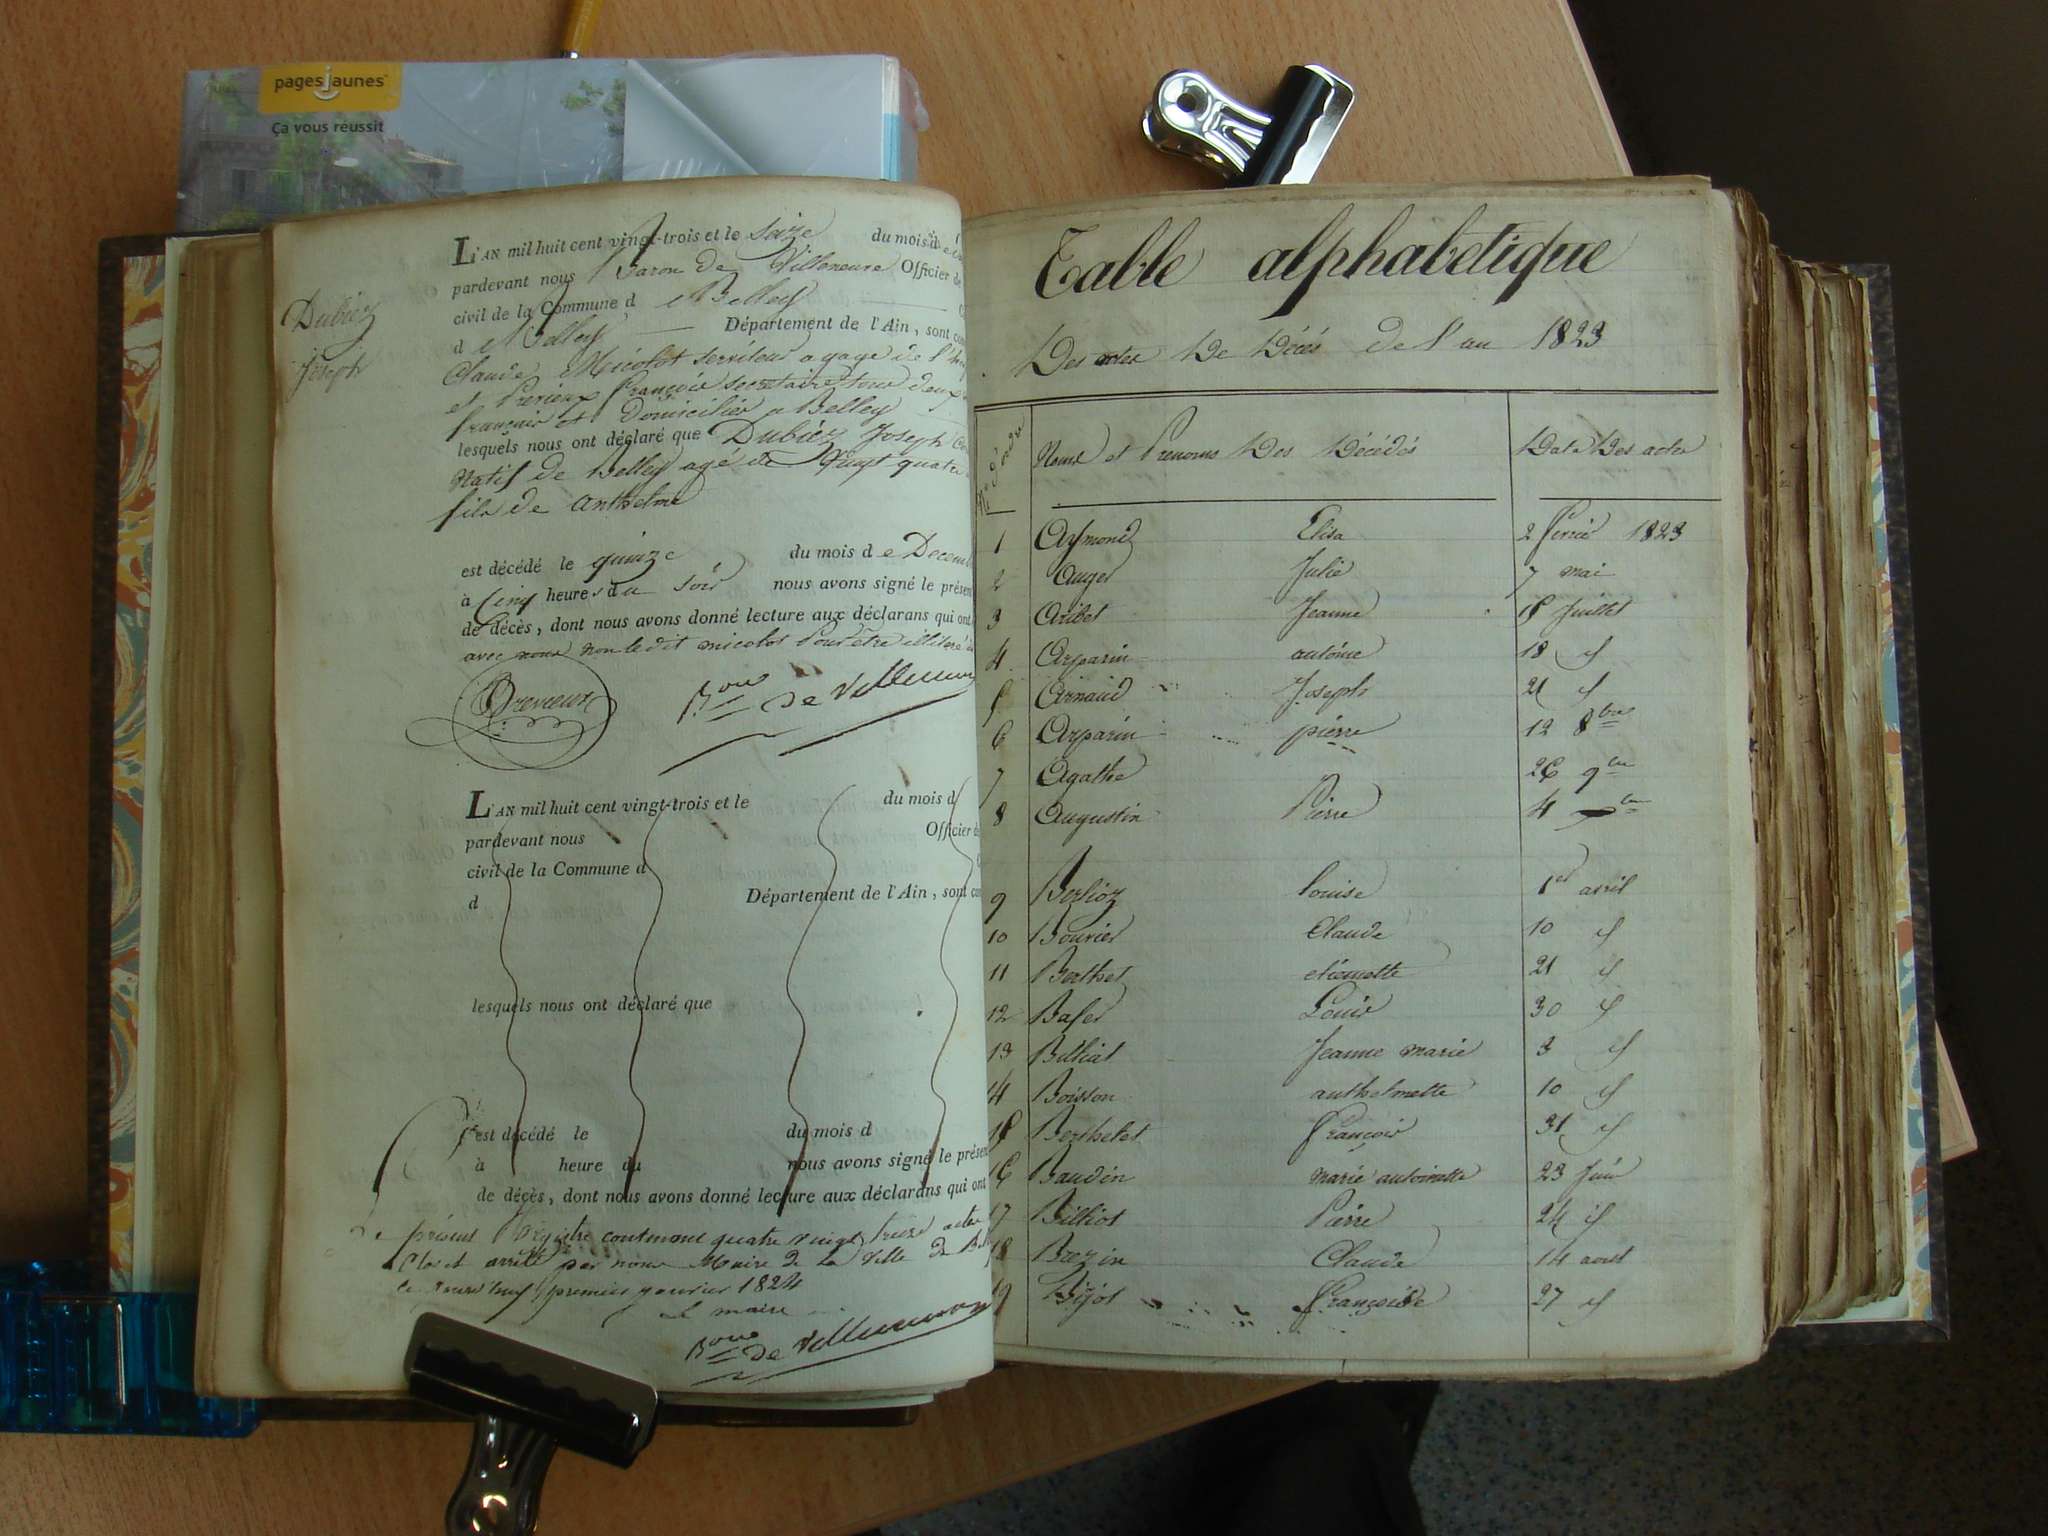 pagesjaunes
Ça vous réussit
L'AN mil huit cent vingt-trois et le Seize du mois d
pardevant nous Baron De Villeneuve Officier de
civil de la Commune d e Belley
d e Belley Département de l'Ain, sont com
Claude Micolot serviteur a gage de l'
et Previeux François secretaire tous deux
français et Domiciliés a Belley
lesquels nous ont déclaré que Dubiez Joseph
Natif de Belley agé de Vingt quatre
fils de Anthelme
est décédé le quinze du mois d e Decem
à Cinq heures du soir nous avons signé le présen
de décès, dont nous avons donné lecture aux déclarans qui ont
avec nous non ledit micolot Pour être illiteré
Dubiez
Joseph
Previeux
Bon de Villeneuve
L'AN mil huit cent vingt-trois et le du mois d
pardevant nous Officier d
civil de la Commune d
d Département de l'Ain, sont com
lesquels nous ont déclaré que
est décédé le du mois d
à heure du nous avons signé le présen
de décès, dont nous avons donné lecture aux déclarans qui ont
Le présent Régistre contenant quatre vingt treize actes
Clos et arrêté par nous Maire de la Ville de Bel
premier janvier 1824
Le maire
Bon de Villeneuve
Table alphabetique
Des actes De Décés de l'an 1823
Nos d'ordre Noms et Prenoms Des Décédés Date Des actes
1 Aymond Elisa 2 fevrier 1823
2 Auger Julie 7 mai
3 Aribet Jeanne 18 Juillet
4 Arparin antoine 18 id
5 Arnaud Joseph 21 id
6 Arparin pierre 12 8bre
7 Agathe 26 9bre
8 Augustin Pierre 4
9 Berlioz louise 1er avril
10 Bouvier Claude 10 id
11 Berthet etiennette 21 id
12 Louis 30 id
13 Billiat Jeanne marie 3 id
14 Boisson anthelmette 10 id
15 Berthelet françois 31 id
16 Baudin marie antoinette 23 Juin
17 Billiot Pierre 24 id
18 Brezin Claude 14 aout
19 Bijot françoise 27 id